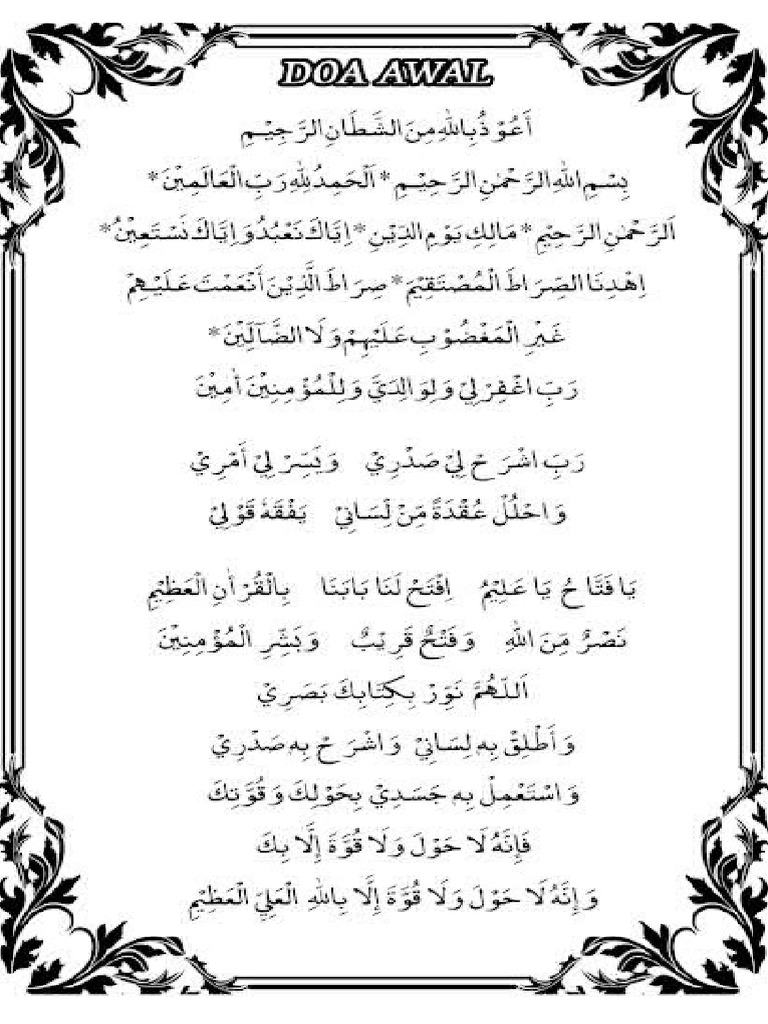 DOA AWAL
أَعُوْذُ بِاللهِ مِنَ الشَّطَانِ الرَّجِيْمِ
بِسْمِ اللهِ الرَّحْمٰنِ الرَّحِيْمِ * اَلْحَمِدُ لِلهِ رَبِّ الْعَالَمِيْنَ *
اَلرَّحْمٰنِ الرَّحِيْمِ * مَالِكِ يَوْمِ الدِّيْنِ * اِيَّاكَ نَعْبُدُ وَاِيَّاكَ نَسْتَعِيْنُ *
اِهْدِنَا الصِّرَاطَ الْمُصْتَقِيْمَ * صِرَاطَ الَّذِيْنَ أَنْعَمْتَ عَلَيْهِمْ
غَيْرِ الْمَغْضُوْبِ عَلَيْهِمْ وَلَا الضَّآلِّيْنَ *
رَبِّ اغْفِرْ لِيْ وَلِوَالِدَيَّ وَلِلْمُؤْمِنِيْنَ أٰمِيْنَ
رَبِّ اشْرَحْ لِيْ صَدْرِيْ وَيَسِّرْ لِيْ أَمْرِيْ
وَاحْلُلْ عُقْدَةً مِّنْ لِّسَانِيْ يَفْقَهُ قَوْلِيْ
يَا فَتَّاحُ يَا عَلِيْمُ اِفْتَحْ لَنَا بَابَنَا بِالْقُرْاٰنِ الْعَظِيْمِ
نَصْرٌ مِّنَ اللهِ وَفَتْحٌ قَرِيْبٌ وَبَشِّرِ الْمُؤْمِنِيْنَ
اَللّٰهُمَّ نَوِّرْ بِكِتَابِكَ بَصَرِيْ
وَأَطْلِقْ بِهِ لِسَانِيْ وَاشْرَحْ بِهِ صَدْرِيْ
وَاسْتَعْمِلْ بِهِ جَسَدِيْ بِحَوْلِكَ وَقُوَّتِكَ
فَإِنَّهُ لَا حَوْلَ وَلَا قُوَّةَ إِلَّا بِكَ
وَإِنَّهُ لَا حَوْلَ وَلَا قُوَّةَ إِلَّا بِاللهِ الْعَلِيِّ الْعَظِيْمِ